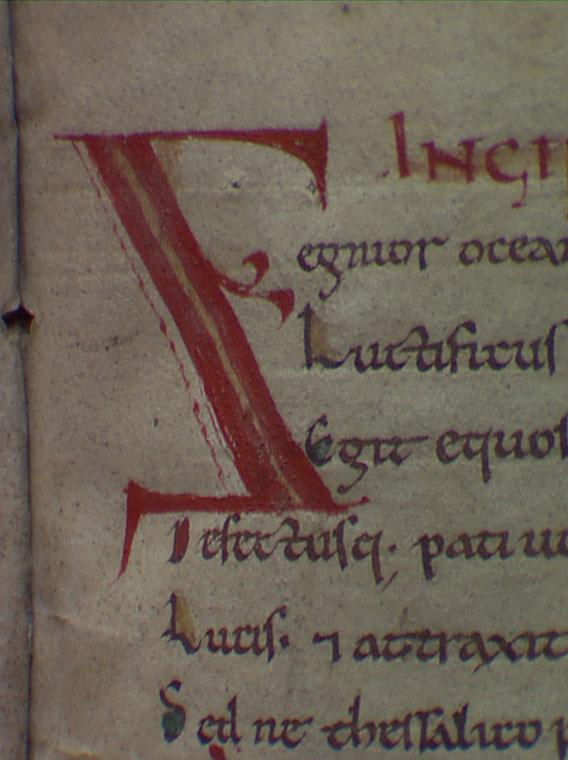 INCIP
Segnior ocean
Luctificus
Egit equos
Defectusq; pati uo
Lucis. ⁊ attraxit
Sed ne thessalico p